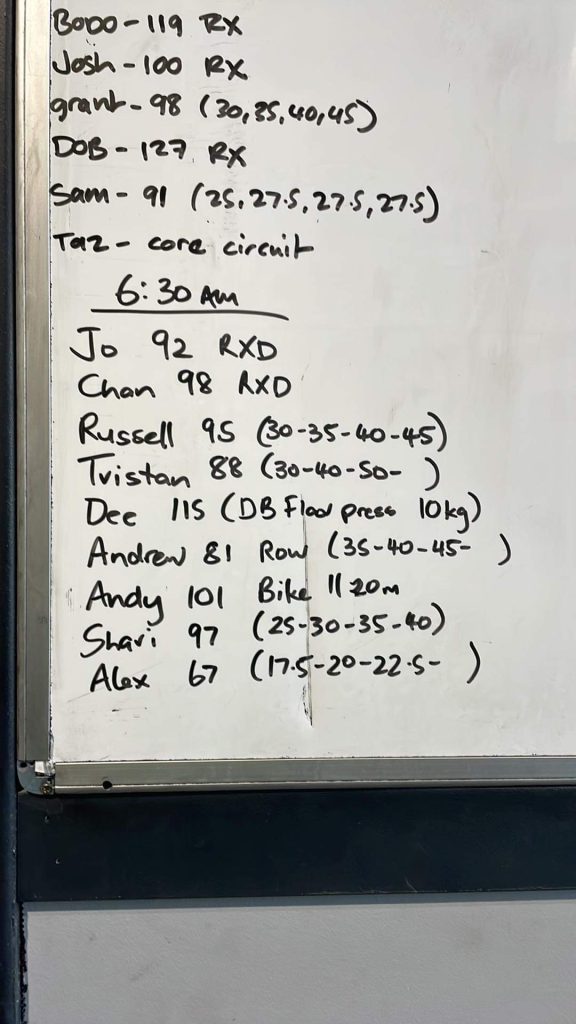 Bodo - 119 RX
Josh - 100 RX
grant - 98 (30,35,40,45)
DOB - 127 RX
Sam - 91 (25,27.5,27.5,27.5)
Taz - core circuit
6:30 AM
Jo 92 RXD
Chan 98 RXD
Russell 95 (30-35-40-45)
Tristan 88 (30-40-50- )
Dee 115 (DB Floor press 10kg)
Andrew 81 Row (35-40-45- )
Andy 101 Bike || 20m
Shari 97 (25-30-35-40)
Alex 67 (17.5-20-22.5- )